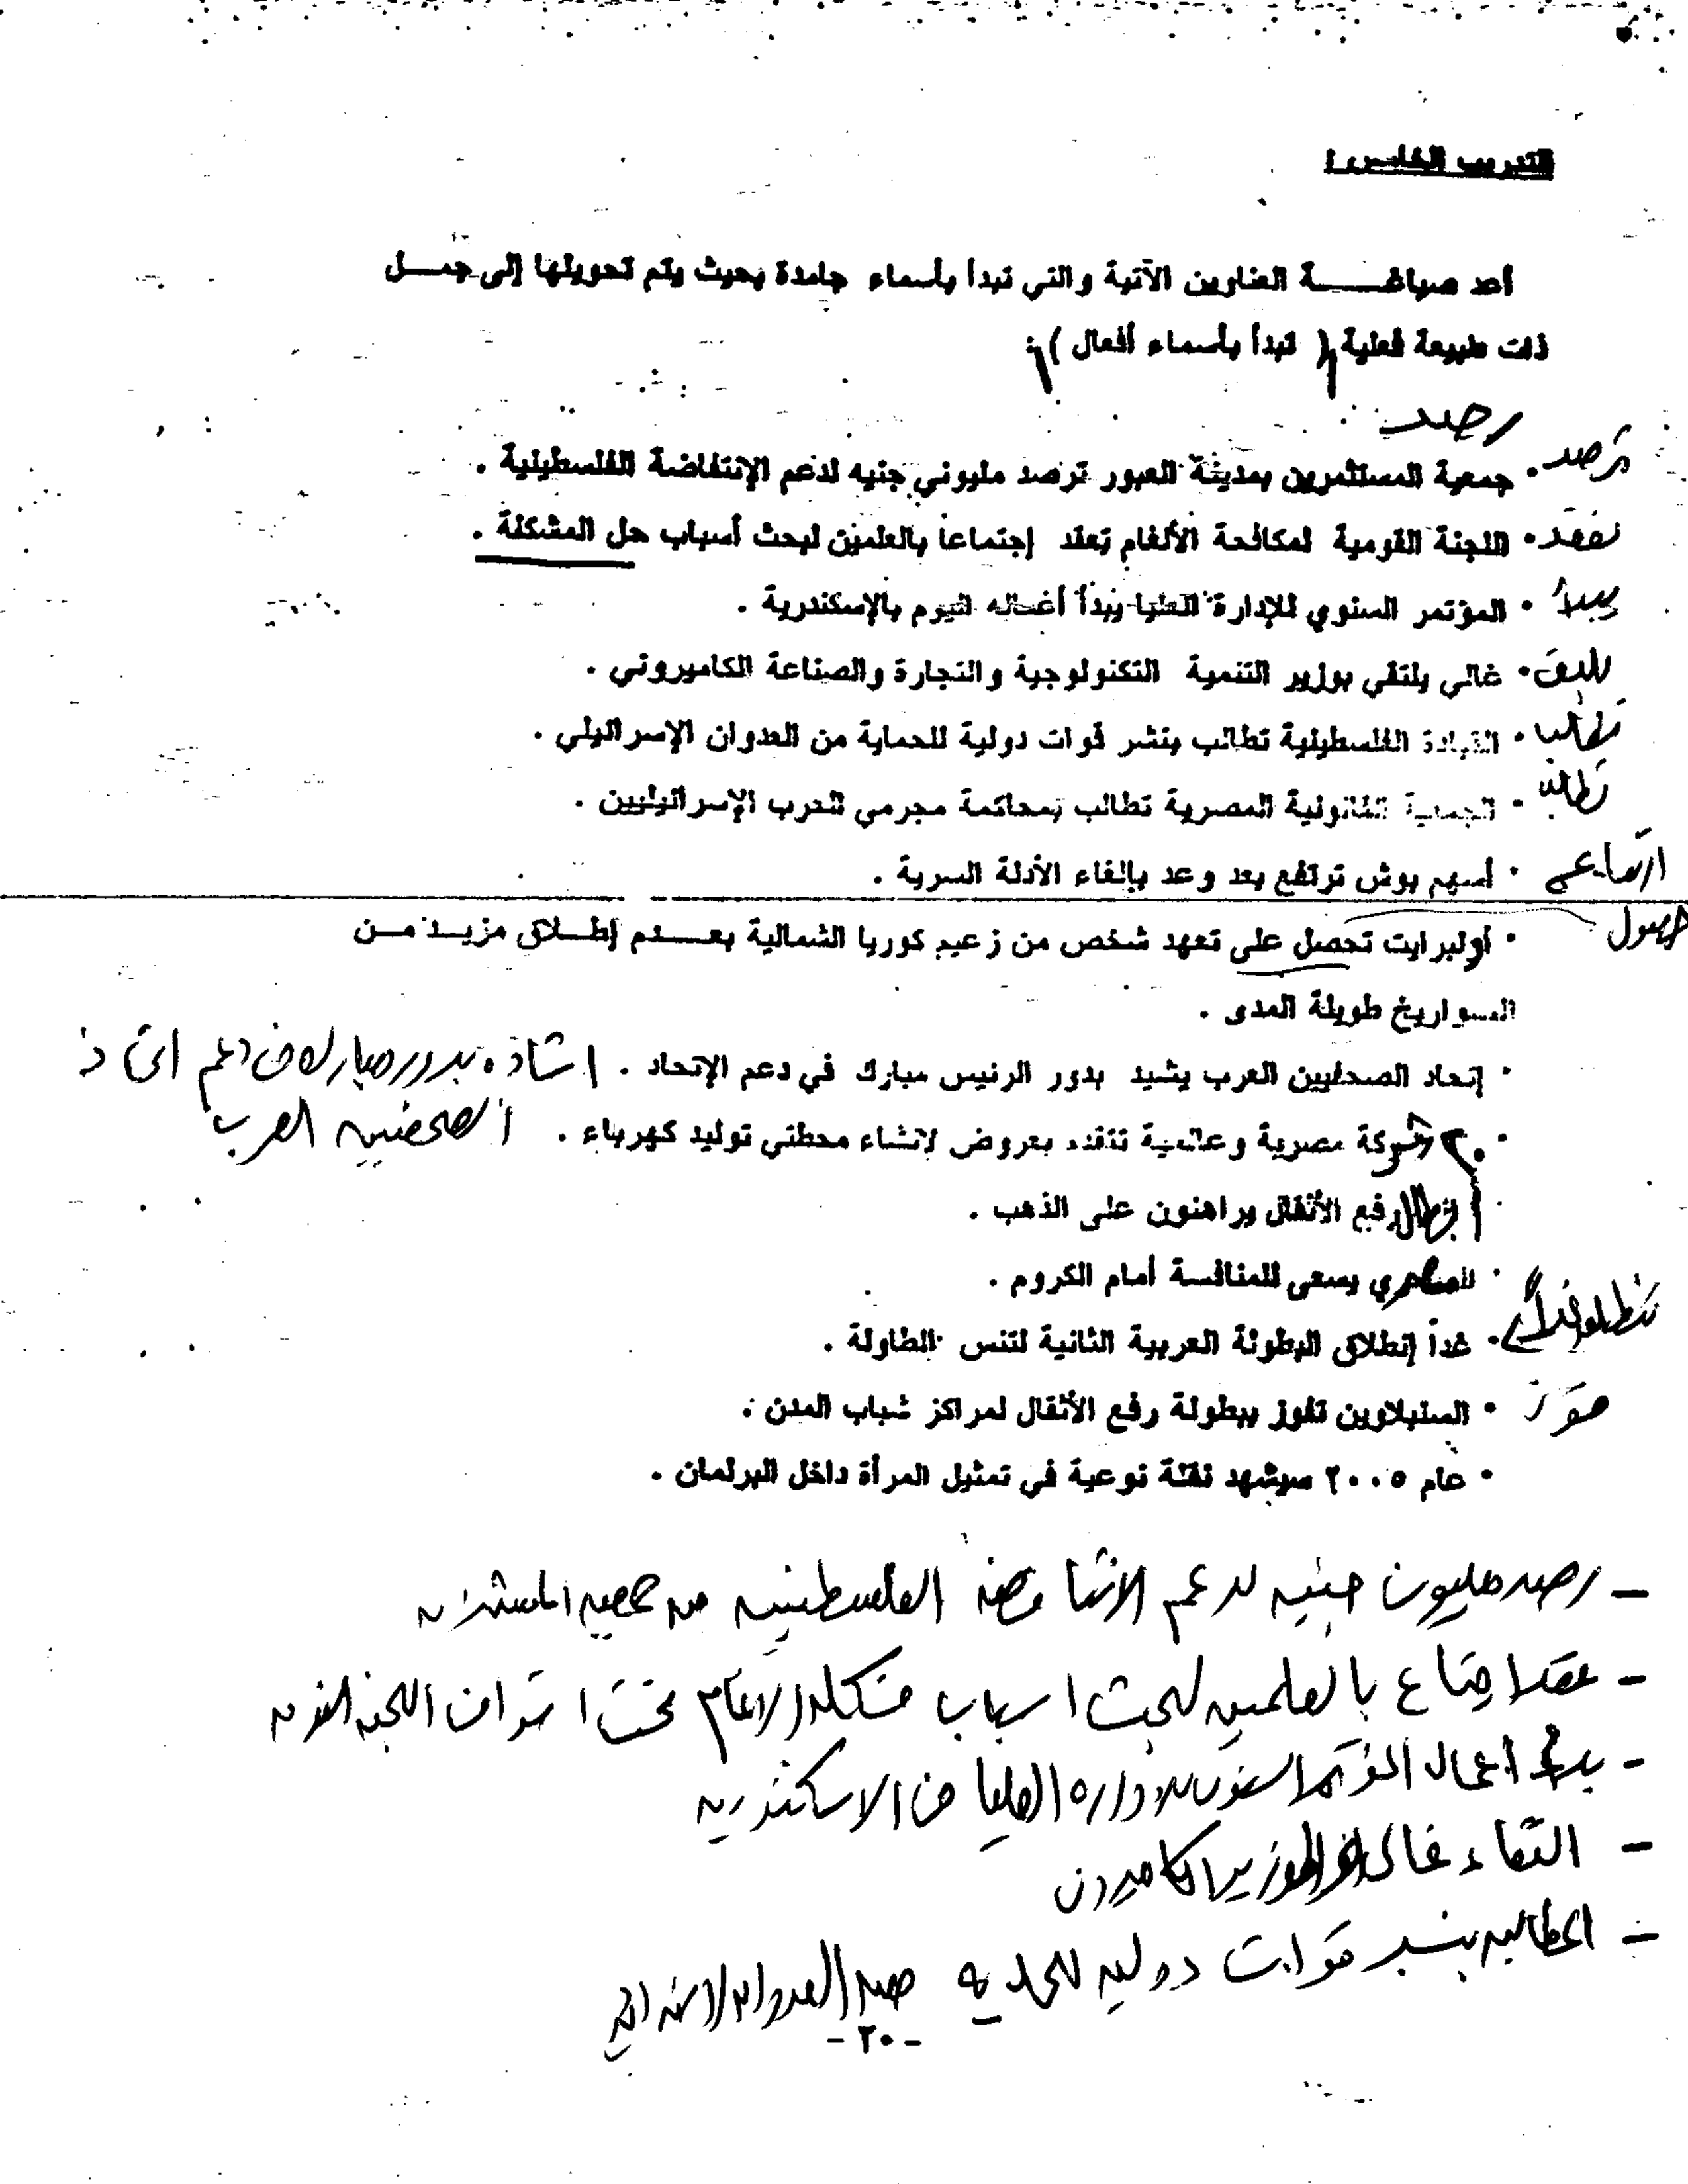 التدريب الخامس :
أعد صياغة العناوين الآتية والتي تبدأ بأسماء جامدة بحيث يتم تحويلها إلى جمل
ذات طبيعة فعلية ( تبدأ بأسماء أفعال ) :
رصد
ترصد • جمعية المستثمرين بمدينة العبور ترصد مليوني جنيه لدعم الإنتفاضة الفلسطينية .
تعقد • اللجنة القومية لمكافحة الألغام تعقد إجتماعا بالعلمين لبحث أسباب حل المشكلة .
يبدأ • المؤتمر السنوي للإدارة العليا يبدأ أعماله اليوم بالإسكندرية .
يلتقى • غالي يلتقي بوزير التنمية التكنولوجية والتجارة والصناعة الكاميروني .
تطالب • القيادة الفلسطينية تطالب بنشر قوات دولية للحماية من العدوان الإسرائيلي .
تطالب • الجمعية القانونية المصرية تطالب بمحاكمة مجرمي الحرب الإسرائيليين .
• أسهم بوش ترتفع بعد وعد بإلغاء الأدلة السرية .
حصول • أولبرايت تحصل على تعهد شخص من زعيم كوريا الشمالية بعدم إطلاق مزيد من
السواريخ طويلة المدى .
• إتحاد الصحفيين العرب يشيد بدور الرئيس مبارك في دعم الإتحاد . اشاده بدور مبارك فى دعم اتحاد
• ٢٠ شركة مصرية وعالمية تتقدم بعروض لإنشاء محطتي توليد كهرباء . الصحفيين العرب
• أبطال رفع الأثقال يراهنون على الذهب .
• المصري يسعى للمنافسة أمام الكروم .
• غداً إنطلاق البطولة العربية الثانية لتنس الطاولة .
• السنبلاوين تفوز ببطولة رفع الأثقال لمراكز شباب المدن .
• عام ٢٠٠٥ سيشهد نقلة نوعية في تمثيل المرأة داخل البرلمان .
- رصد مليون جنيه لدعم الانتفاضه الفلسطينيه من جمعيه المستثمرين
- عقد اجتماع بالعلمين لبحث اسباب مشكله الالغام تحت اشراف اللجنه القوميه
- بدء أعمال المؤتمر السنوى للاداره العليا فى الاسكندريه
- التقاء غالى الوزير الكاميرونى
- المطالبه بنشر قوات دوليه للحمايه ضد العدوان الاسرائيلى
- ٢٠ -